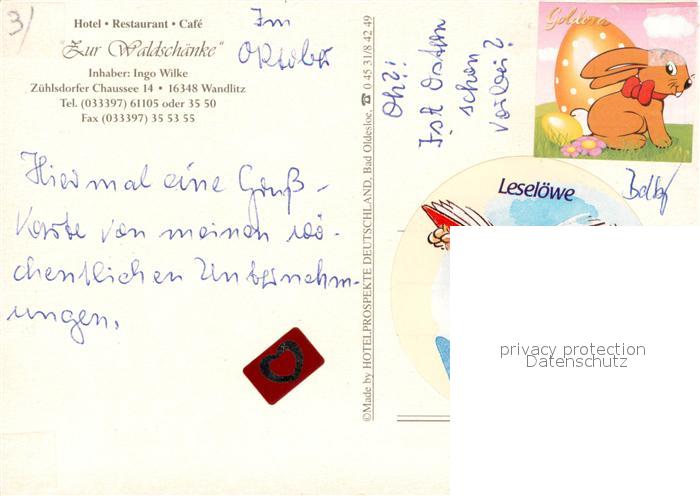 3)
Hotel • Restaurant • Café
"Zur Waldschänke"
Inhaber: Ingo Wilke
Zühlsdorfer Chaussee 14 • 16348 Wandlitz
Tel. (033397) 61105 oder 35 50
Fax (033397) 35 53 55
Im
Oktober
Hier mal eine Gruß-
karte von meinen wö-
chentlichen Unternehm-
ungen.
©Made by HOTELPROSPEKTE DEUTSCHLAND, Bad Oldesloe, ☎ 0 45 31/8 42 49
Oh?!
Ist Ostern
schon
vorbei?
Goldora
Leselöwe
privacy protection
Datenschutz